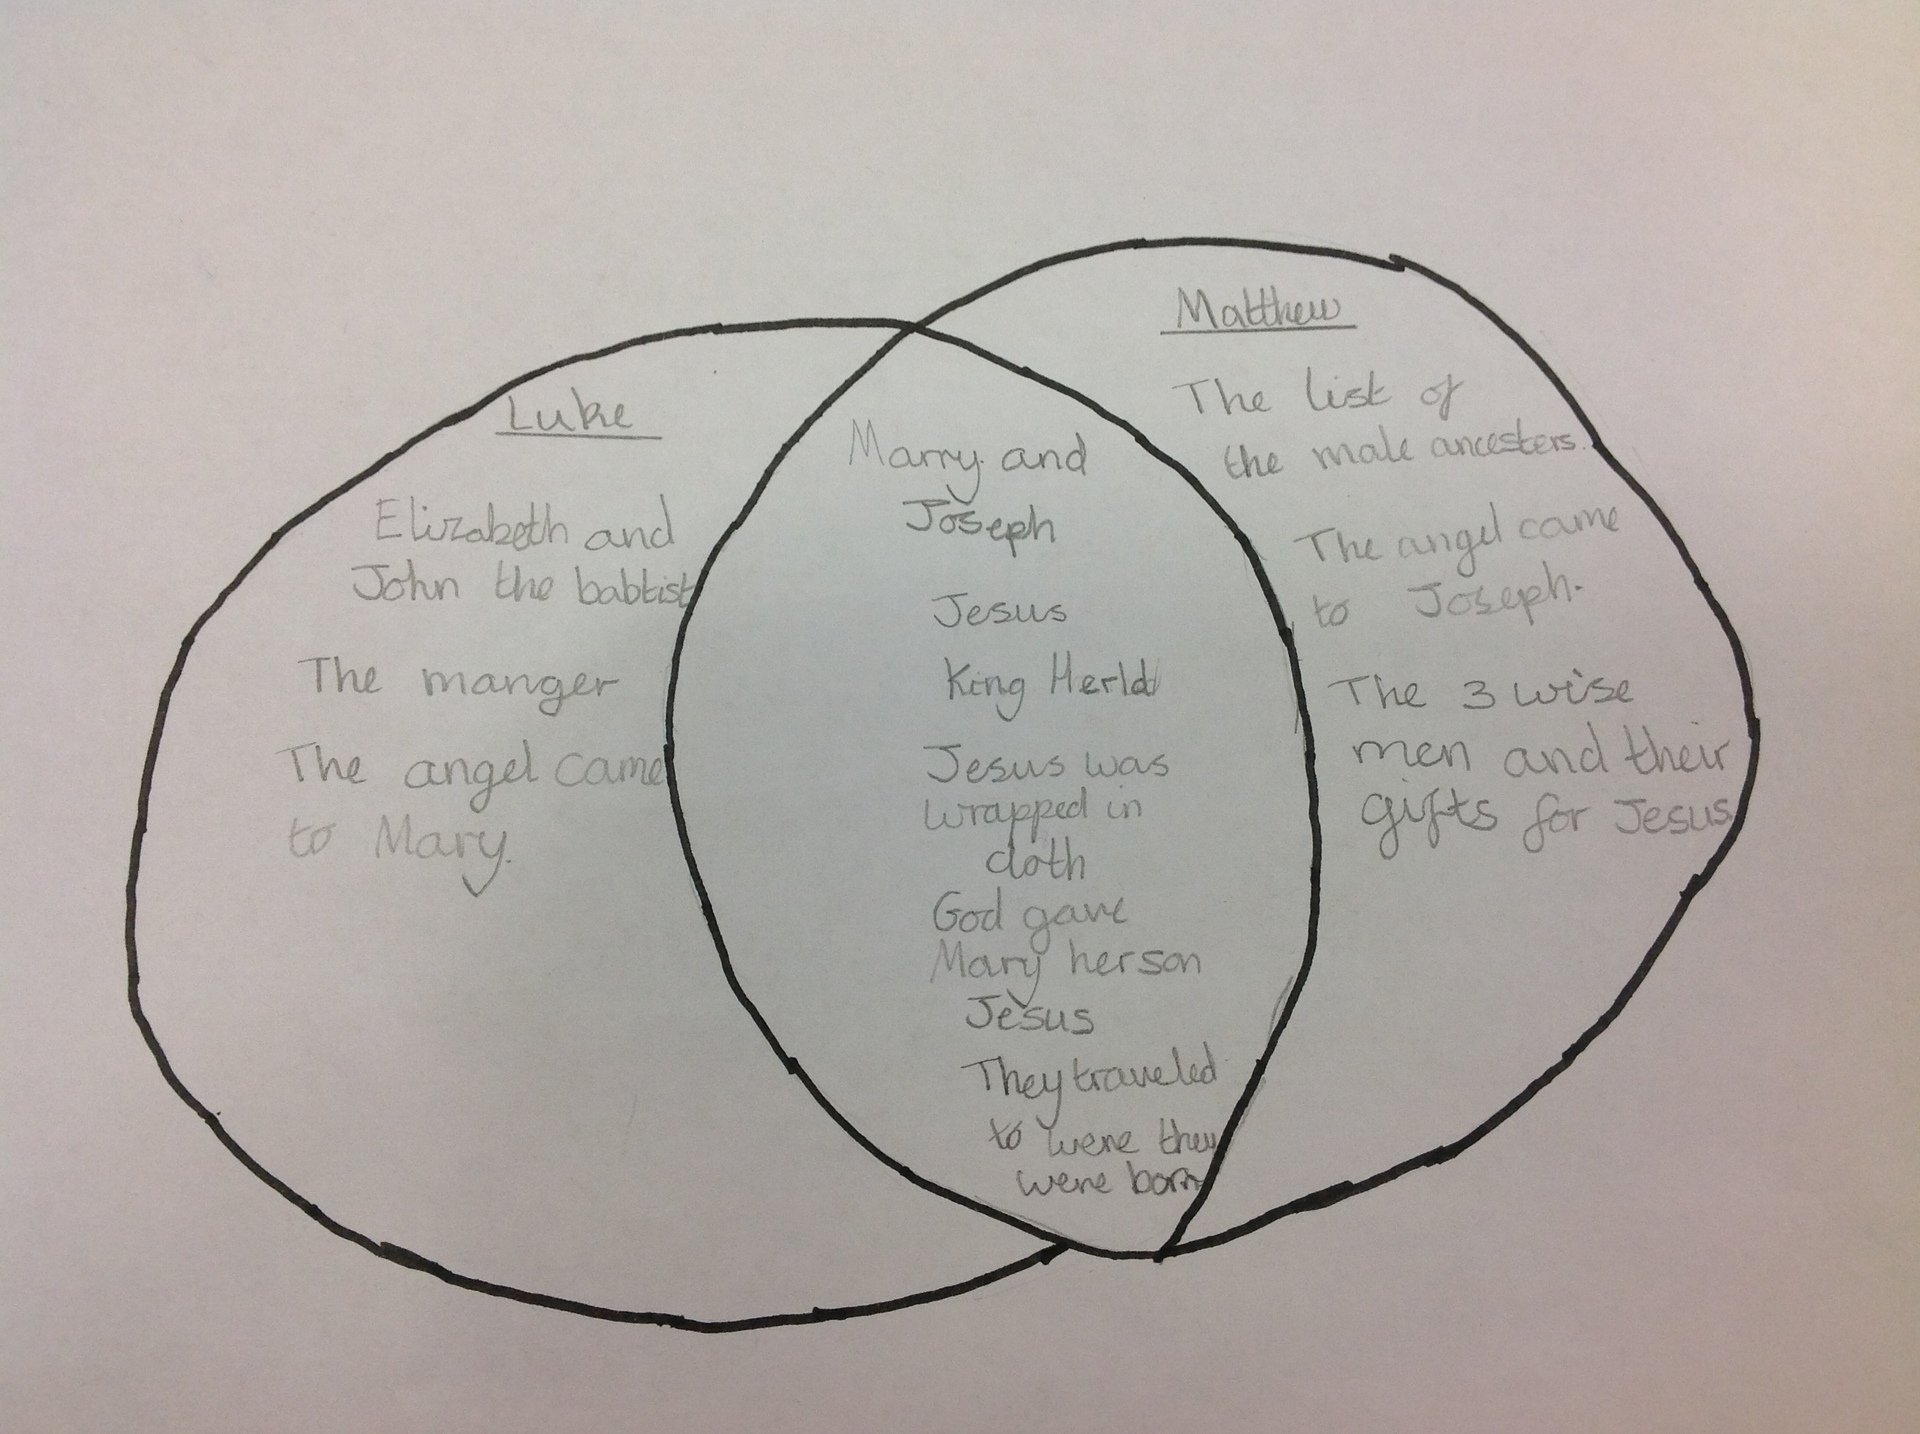 Luke
Elizabeth and
John the babtist
The manger
The angel came
to Mary.
Marry and
Joseph
Jesus
King Herld
Jesus was
wrapped in
cloth
God gave
Mary her son
Jesus
They traveled
to were they
were born
Matthew
The list of
the male ancesters.
The angel came
to Joseph.
The 3 wise
men and their
gifts for Jesus